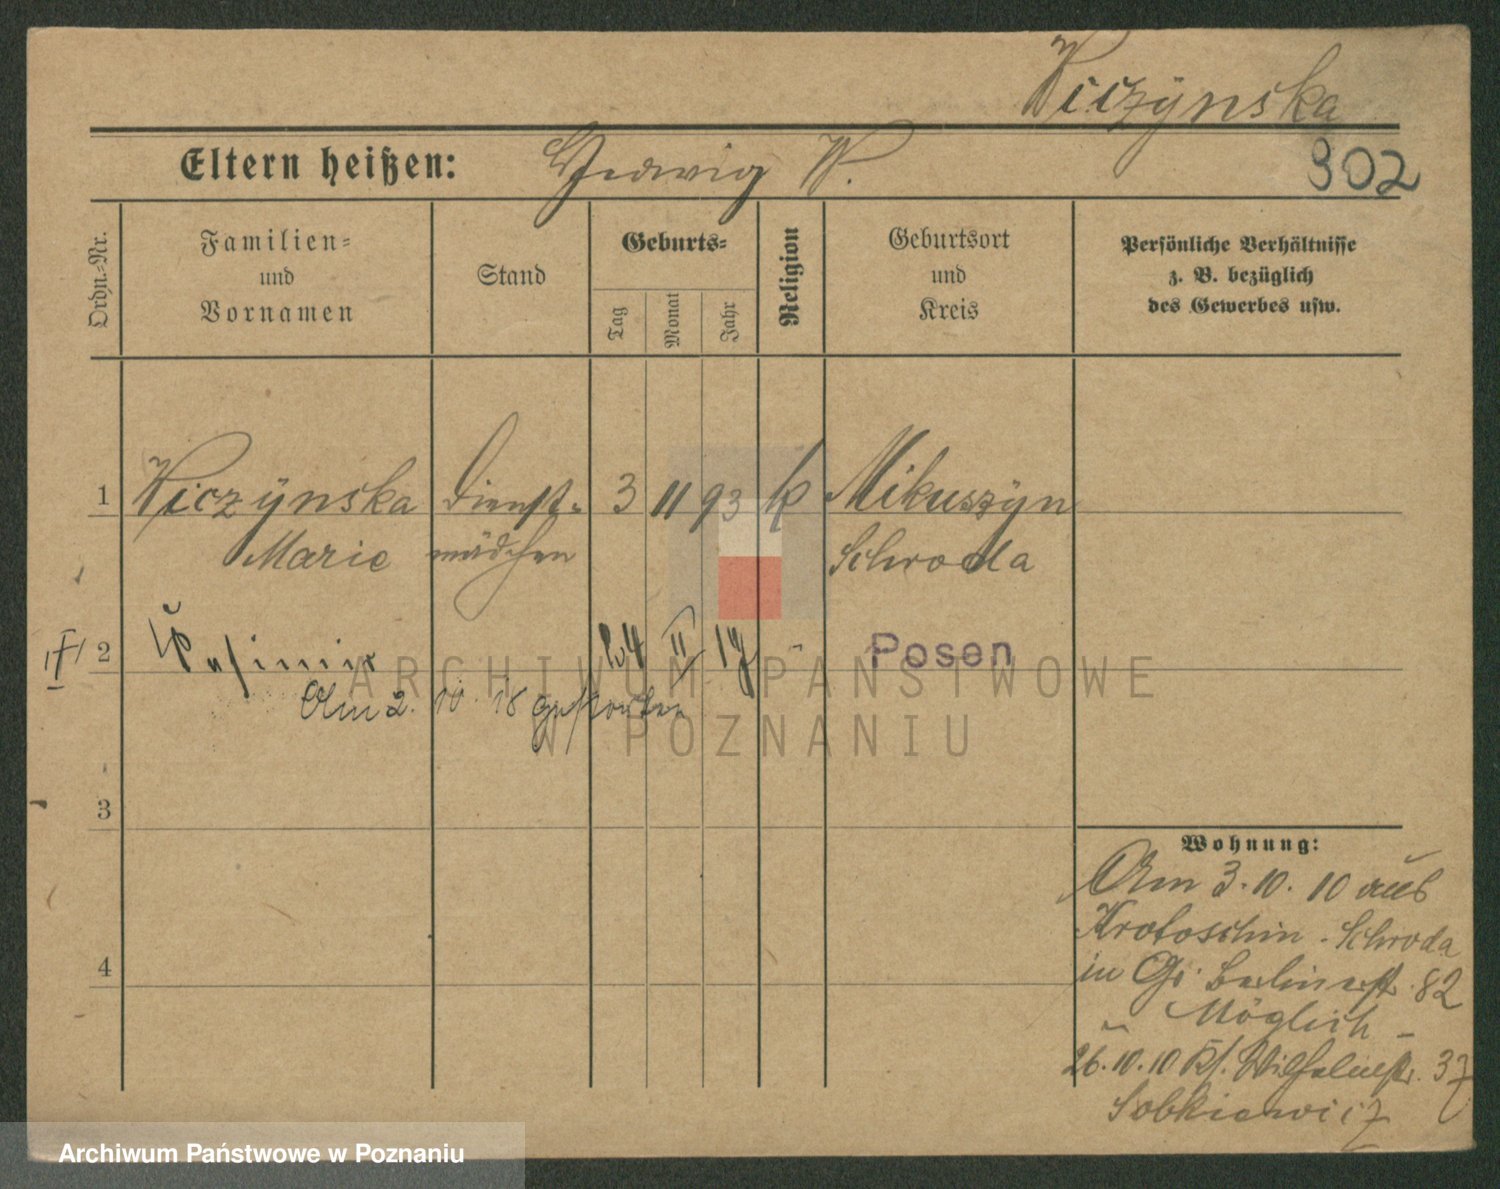 Wiczÿnska
Eltern heißen: Hedwig W.
302
Ordn.-Nr.
Familien-
und
Vornamen
Stand
Geburts-
Tag
Monat
Jahr
Religion
Geburtsort
und
Kreis
Persönliche Verhältnisse
z. B. bezüglich
des Gewerbes usw.
1 Wiczÿnska Dienst- 3 11 93 k Mikuszÿn
Marie mädchen Schroda
2 24 II Posen
Am 2. 10. 18 gestorben
3
Wohnung:
Am 3. 10. 10 aus
Krotoschin - Schroda
in Gr. Berlinerstr. 82
Möglich -
26. 10. 10 Wilhelmstr. 37
Sobkiewicz
4
ARCHIWUM PAŃSTWOWE
W POZNANIU
Archiwum Państwowe w Poznaniu